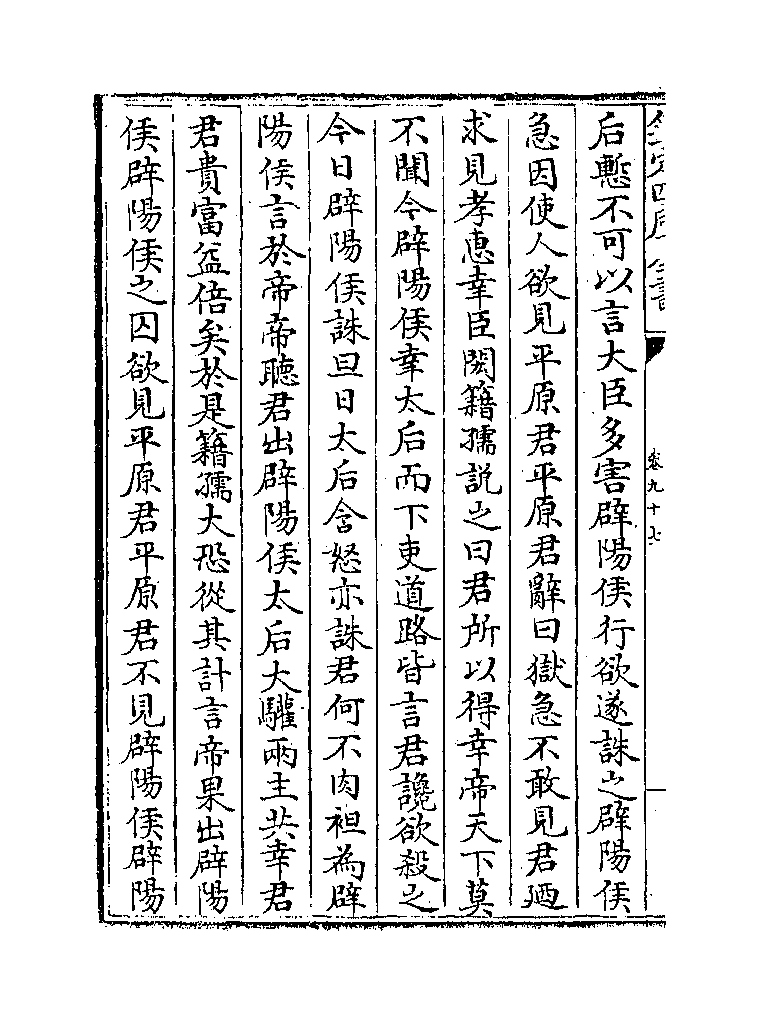 后慙不可以言大臣多害辟陽侯行欲遂誅之辟陽侯
急因使人欲見平原君平原君辭曰獄急不敢見君廼
求見孝惠幸臣閎籍孺説之曰君所以得幸帝天下莫
不聞今辟陽侯幸太后而下吏道路皆言君讒欲殺之
今日辟陽侯誅旦日太后含怒亦誅君何不肉袒為辟
陽侯言於帝帝聽君出辟陽侯太后大驩兩主共幸君
君貴富益倍矣於是籍孺大恐從其計言帝果出辟陽
侯辟陽侯之囚欲見平原君平原君不見辟陽侯辟陽
卷九十七